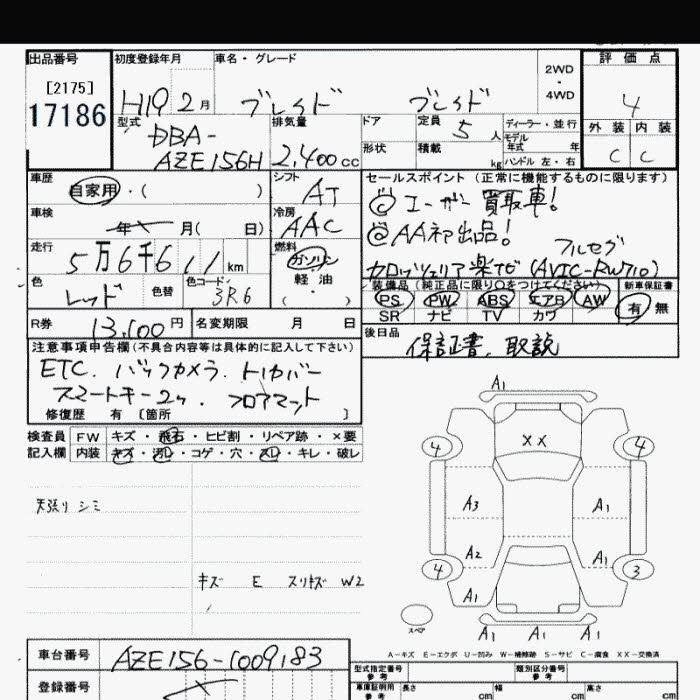 出品番号
[2175]
17186
初度登録年月
H19 2月
車名・グレード
ブレイド ブレイド
2WD
・
4WD
評価点
4
外装 内装
C C
型式
DBA-
AZE156H
排気量
2,400cc
ドア
定員 5人
形状
積載 kg
ディーラー・並行
モデル
年式 年
ハンドル 左・右
車歴
自家用・( )
シフト
AT
車検
年 月( 日)
冷房
AAC
走行
5万6千6 11 km
燃料
ガソリン
軽油
( ・ )
色
レッド
色替
色コード
3R6
R券
13,100円
名変期限 月 日
セールスポイント (正常に機能するものに限ります)
◎ユーザー買取車!
◎AA初出品!
フルセグ
カロッツェリア楽ナビ(AVIC-RW710)
装備品(純正品に限り○をつけてください)
PS PW ABS エアB AW
SR ナビ TV カワ
新車保証書
有 無
後日品
保証書、取説
注意事項申告欄(不具合内容等は具体的に記入して下さい)
ETC. バックカメラ. トノカバー
スマートキー2ヶ. フロアマット
修復歴 有 〔箇所 〕
検査員 FW キズ・飛石・ヒビ割・リペア跡・×要
記入欄 内装 キズ・汚レ・コゲ・穴・スレ・キレ・破レ
天張りシミ
キズ E スリキズ W2
A1
XX
4 4
A3 A1
A2 A1
4 3
A1
スペア
A1 A1 A1
A-キズ E-エクボ U-凹み W-補修跡 S-サビ C-腐食 XX-交換済
車台番号
AZE156-1009183
登録番号
型式指定番号
参考
類別区分番号
参考
車庫証明用
参考
長さ cm 幅 cm 高さ cm